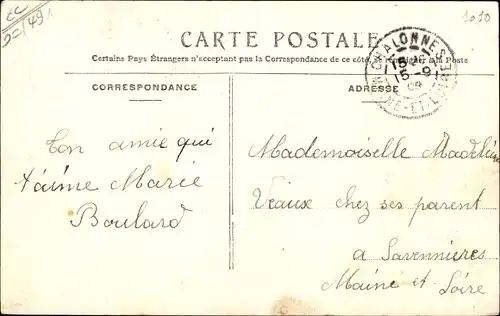 CC
1010
CARTE POSTALE
Certains Pays Étrangers n'acceptent pas la Correspondance de ce côté, se renseigner à la Poste
CHALONNES
15 -9
08
MAINE-ET-LOIRE
CORRESPONDANCE
ADRESSE
Ton amie qui
t'aime Marie
Boulard
Mademoiselle Madeleine
Veaux chez ses parent
a Savennières
Maine et Loire